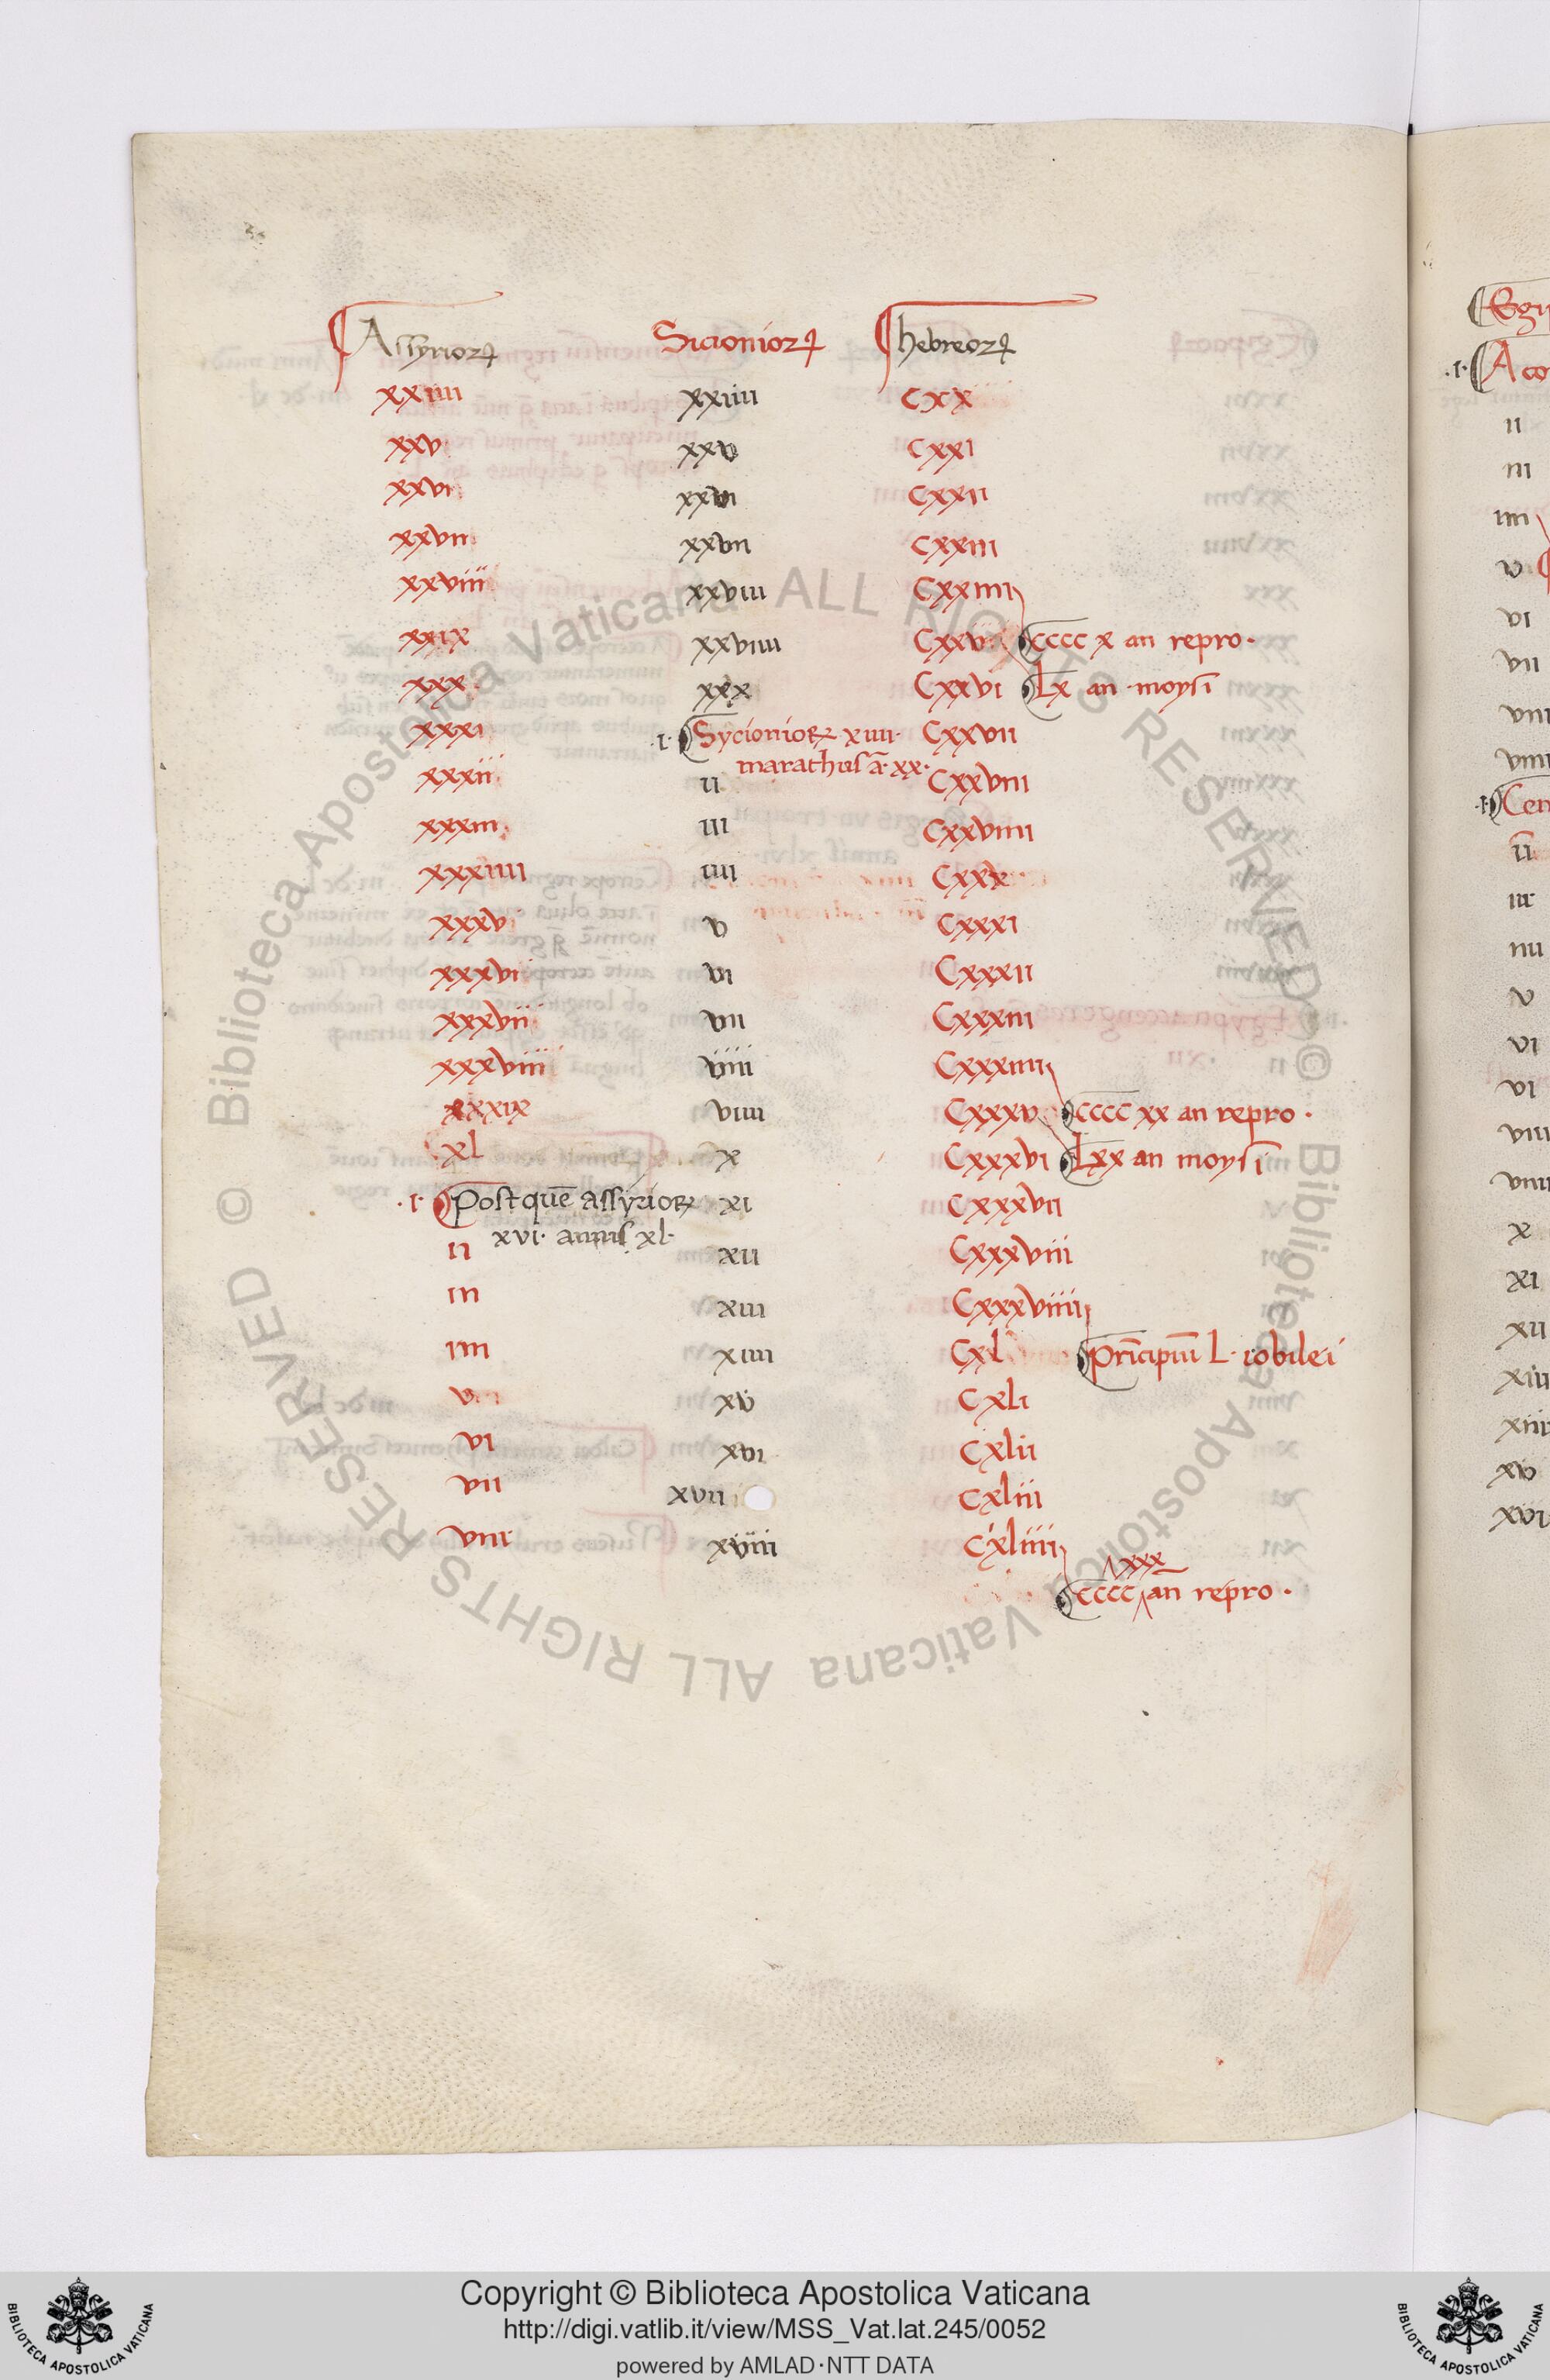 Assyrioꝝ Sicionioꝝ hebreoꝝ
xxiiii xxiiii cxx
xxv xxv cxxi
xxvi xxvi cxxii
xxvii xxvii cxxiii
xxviii xxviii cxxiiii
xxix xxviiii cxxv ccccx an repro.
xxx xxx cxxvi Lx an moysi
xxxi .i. Sycionioꝝ xiiii. cxxvii
marathus ā. xx.
xxxii ii cxxviii
xxxiii iii cxxviiii
xxxiiii iiii cxxx
xxxv v cxxxi
xxxvi vi cxxxii
xxxvii vii cxxxiii
xxxviii viii cxxxiiii
xxxix viiii cxxxv cccc xx an repro.
xl x cxxxvi Lxx an moysi
.i. Post quē assyrioꝝ xi cxxxvii
xvi. annis xl.
ii xii cxxxviii
iii xiii cxxxviiii
iiii xiiii cxl prīcipiū L. iobilei
v xv cxli
vi xvi cxlii
vii xvii cxliii
viii xviii cxliiii
xxx
cccc an repro.
Egi
.i. A co
ii
iii
iiii
v
vi
vii
viii
viiii
.i. Cen
ii
iii
iiii
v
vi
vi
viii
viiii
x
xi
xii
xiii
xiiii
xv
xvi
© Biblioteca Apostolica Vaticana ALL RIGHTS RESERVED © Biblioteca Apostolica Vaticana ALL RIGHTS RESERVED
Copyright © Biblioteca Apostolica Vaticana
http://digi.vatlib.it/view/MSS_Vat.lat.245/0052
powered by AMLAD·NTT DATA
BIBLIOTECA APOSTOLICA VATICANA
BIBLIOTECA APOSTOLICA VATICANA